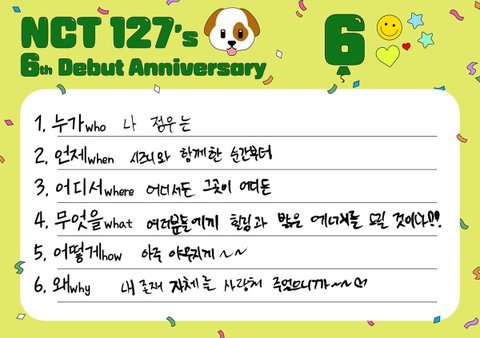 NCT 127's
6th Debut Anniversary
6
1. 누가who 나 정우는
2. 언제when 시즈니와 함께한 순간부터
3. 어디서where 어디서든 그곳이 어디든
4. 무엇을what 여러분들에게 힐링과 밝은 에너지를 드릴 것이다!!
5. 어떻게how 아주 야무지게~~
6. 왜why 내 존재 자체를 사랑해 주었으니까~~♡